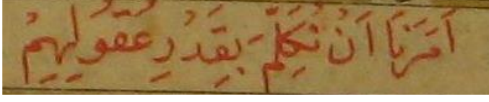 اَمَرَنَا اَنْ نُكَلِّمَ بِقَدْرِ عُقُولِهِمْ